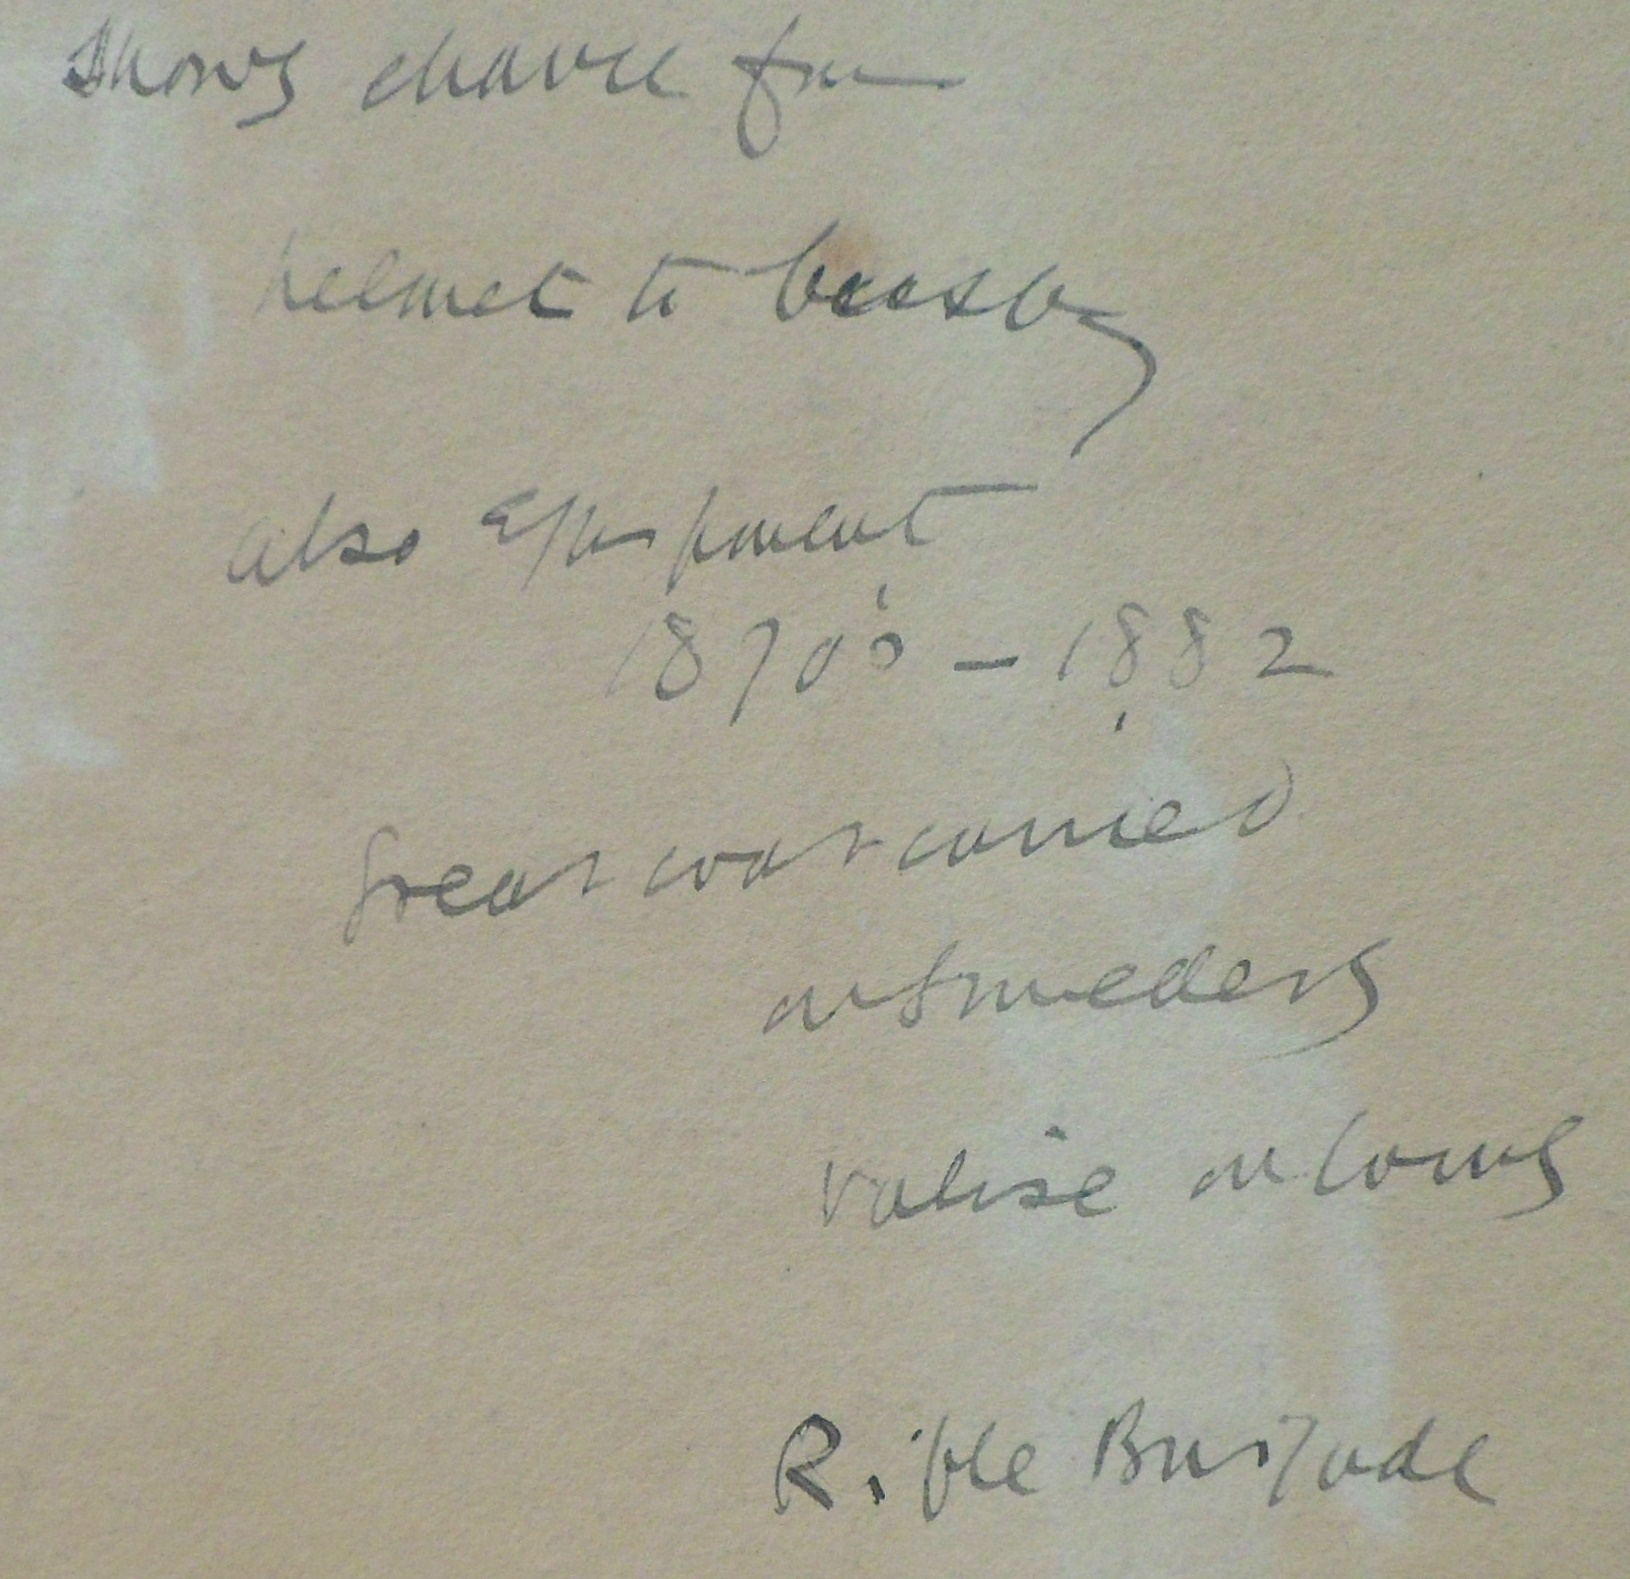 Shows chance from
helmet to busby
also Equipment
1870's – 1882
Great coat carried
on shoulders
valise on loins
Rifle Brigade